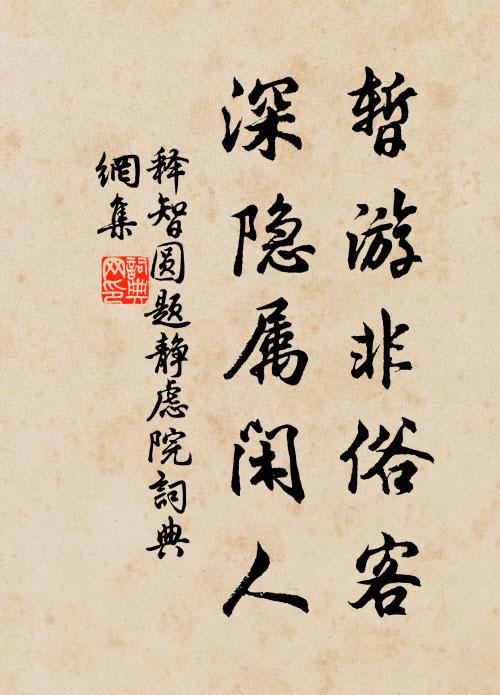 暂游非俗客
深隐属闲人
释智圆题静虑院词典
网集
词典网印